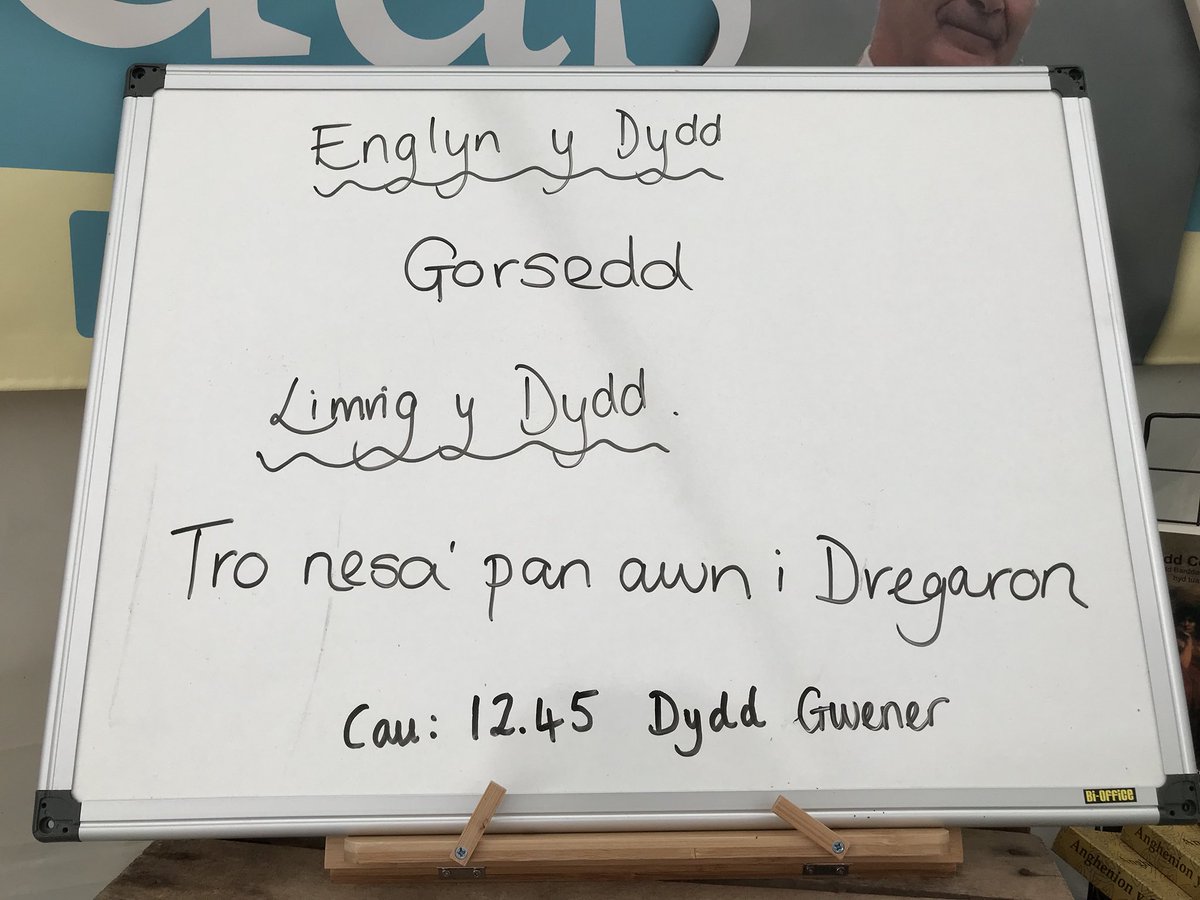 Englyn y Dydd
Gorsedd
Limrig y Dydd.
Tro nesa' pan awn i Dregaron
Cau: 12.45 Dydd Gwener
Bi-OFFiCE
dd C
Anghenion
Anghenion